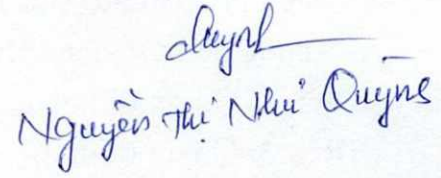 Quỳnh
Nguyễn Thị Như Quỳnh